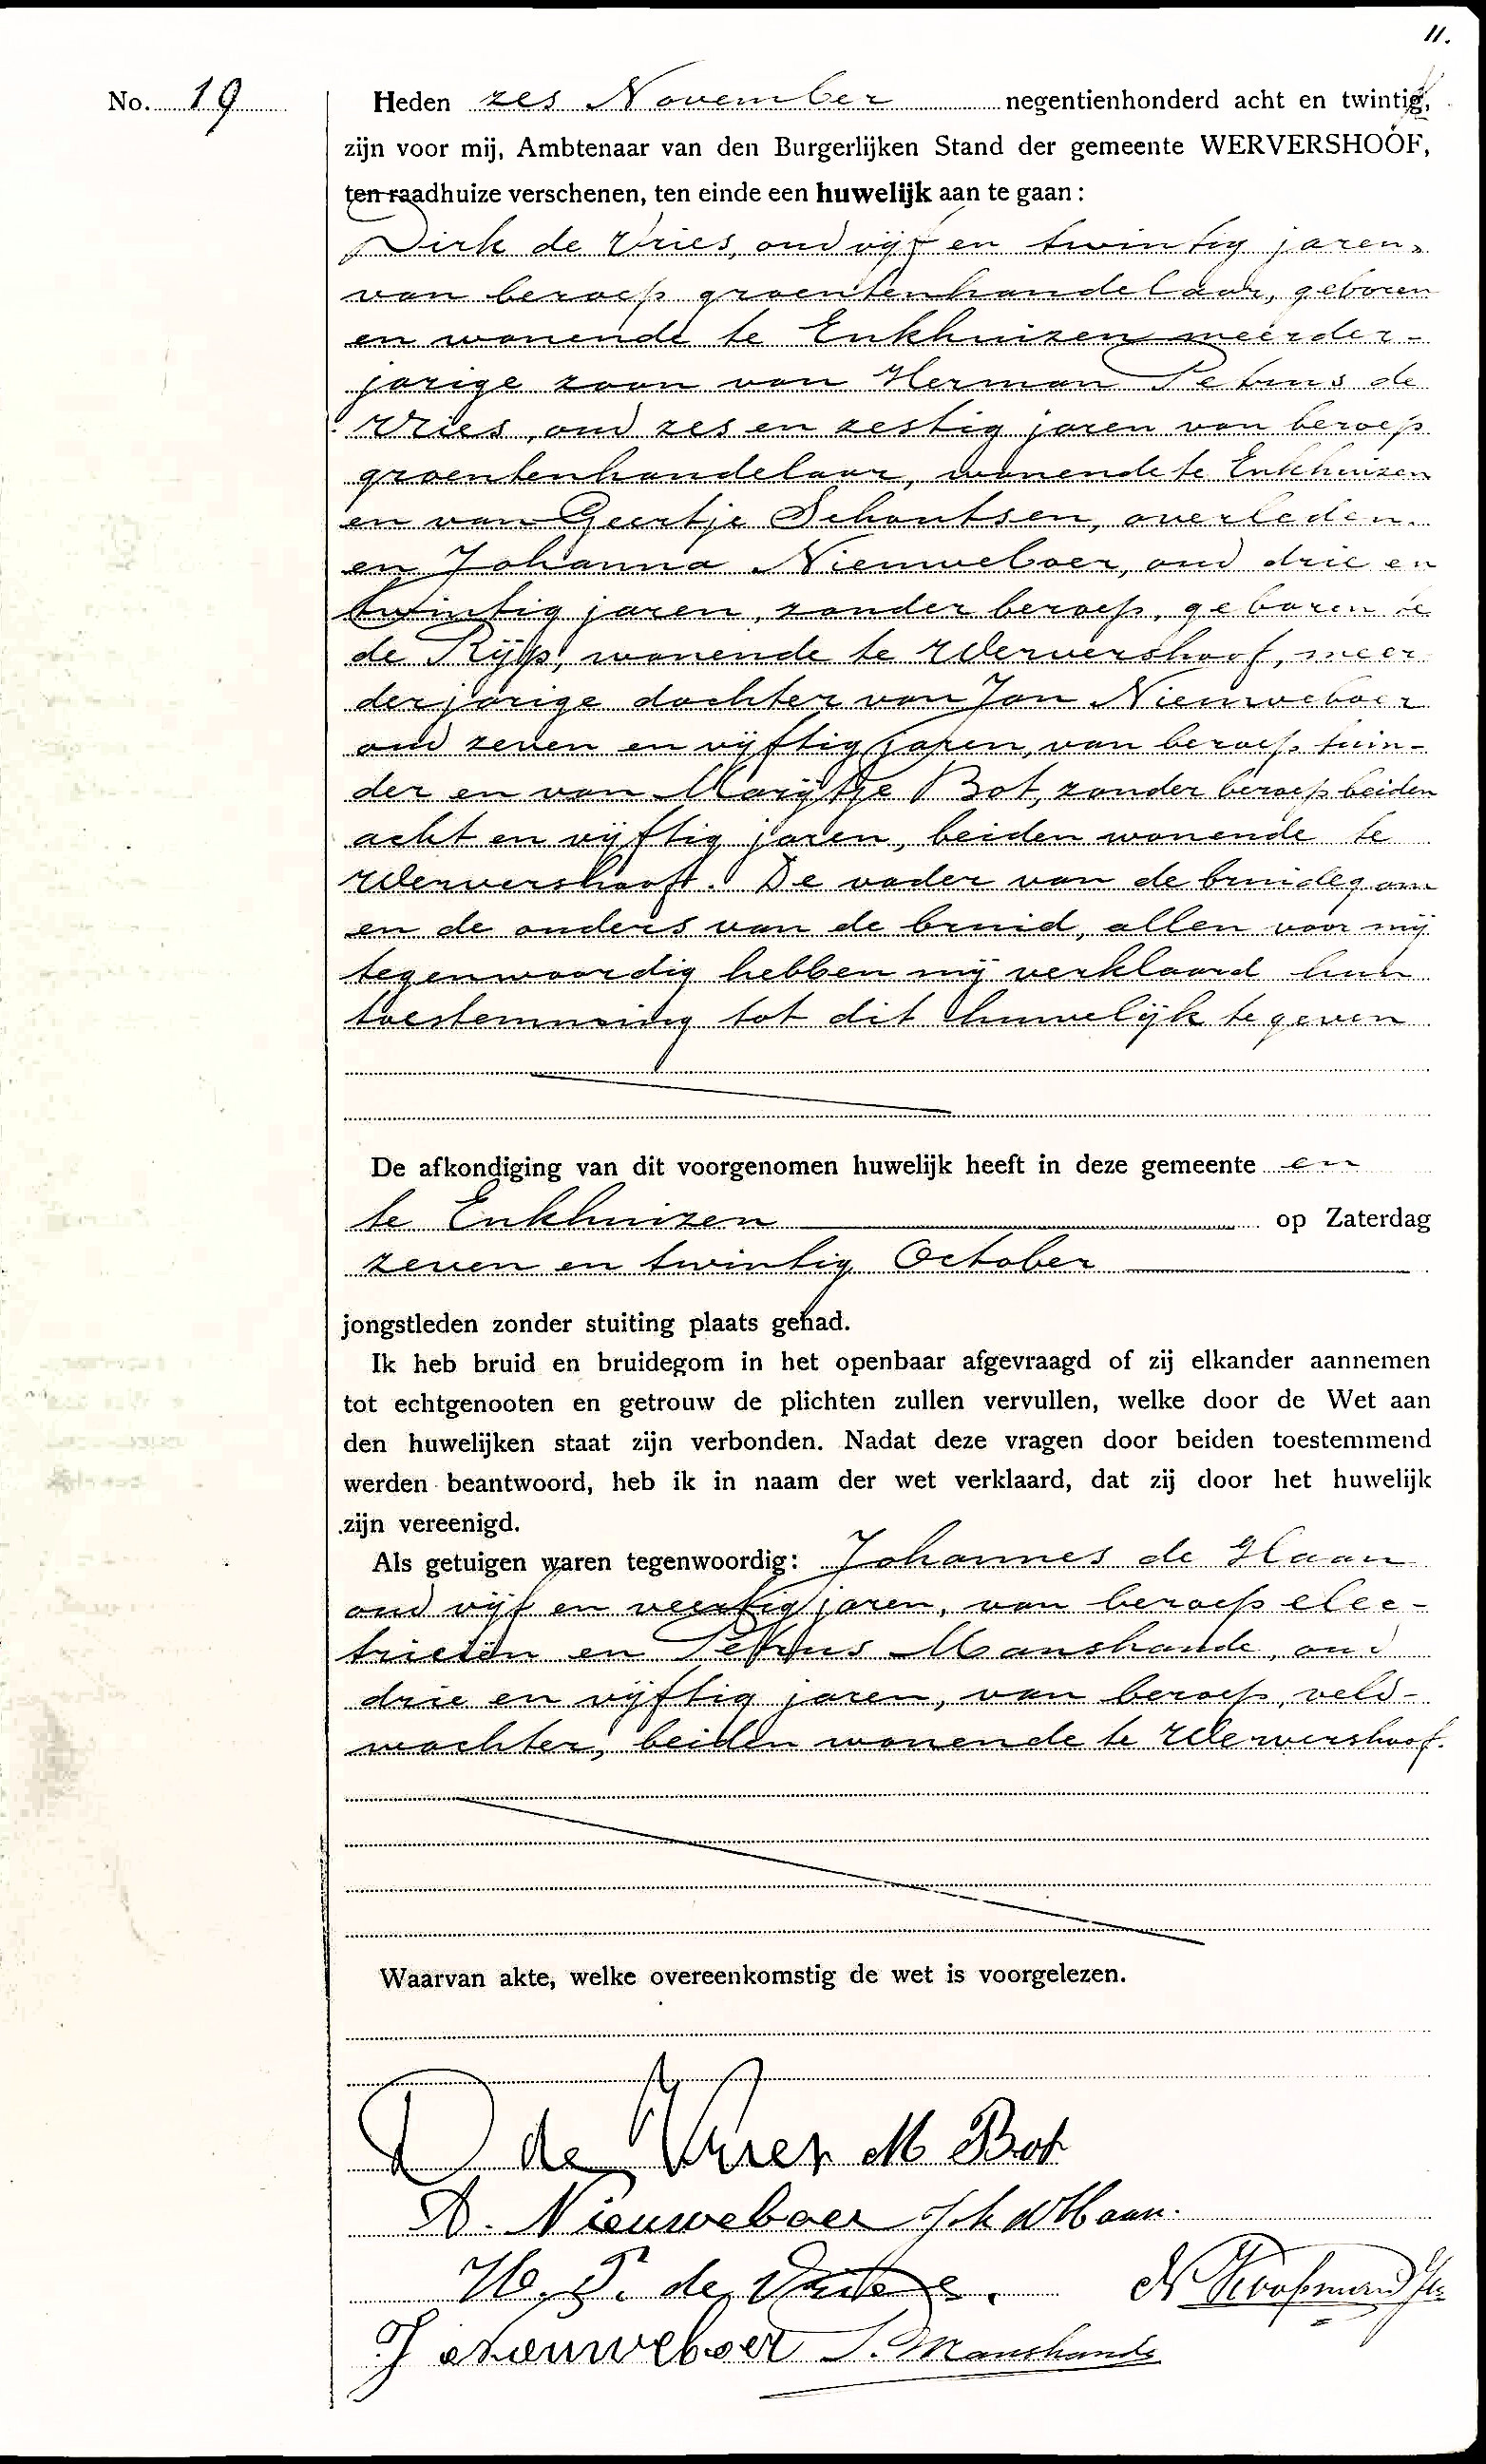 11.
No. 19
Heden zes November negentienhonderd acht en twintig,
zijn voor mij, Ambtenaar van den Burgerlijken Stand der gemeente WERVERSHOOF,
ten raadhuize verschenen, ten einde een huwelijk aan te gaan:
Dirk de Vries, oud vijf en twintig jaren,
van beroep groentenhandelaar, geboren
en wonende te Enkhuizen meerder-
jarige zoon van Herman Petrus de
Vries, oud zes en zestig jaren van beroep
groentenhandelaar, wonende te Enkhuizen
en van Geertje Schoutsen, overleden.
en Johanna Nieuweboer, oud drie en
twintig jaren, zonder beroep, geboren te
de Rijp, wonende te Wervershoof, meer
derjarige dochter van Jan Nieuweboer
oud zeven en vijftig jaren, van beroep tuin-
der en van Marijtje Bot, zonder beroep beiden
acht en vijftig jaren, beiden wonende te
Wervershoof. De vader van de bruidegom
en de ouders van de bruid, allen voor mij
tegenwoordig hebben mij verklaard hun
toestemming tot dit huwelijk te geven
De afkondiging van dit voorgenomen huwelijk heeft in deze gemeente en
te Enkhuizen op Zaterdag
zeven en twintig October
jongstleden zonder stuiting plaats gehad.
Ik heb bruid en bruidegom in het openbaar afgevraagd of zij elkander aannemen
tot echtgenooten en getrouw de plichten zullen vervullen, welke door de Wet aan
den huwelijken staat zijn verbonden. Nadat deze vragen door beiden toestemmend
werden beantwoord, heb ik in naam der wet verklaard, dat zij door het huwelijk
zijn vereenigd.
Als getuigen waren tegenwoordig: Johannes de Haan
oud vijf en veertig jaren, van beroep elec-
tricien en Petrus Manshande, oud
drie en vijftig jaren, van beroep, veld-
wachter, beiden wonende te Wervershoof.
Waarvan akte, welke overeenkomstig de wet is voorgelezen.
D de Vries M Bot
A. Nieuweboer Joh d Haan.
H. P. de Vries. N Koopman Jz
J Nieuweboer P. Manshande